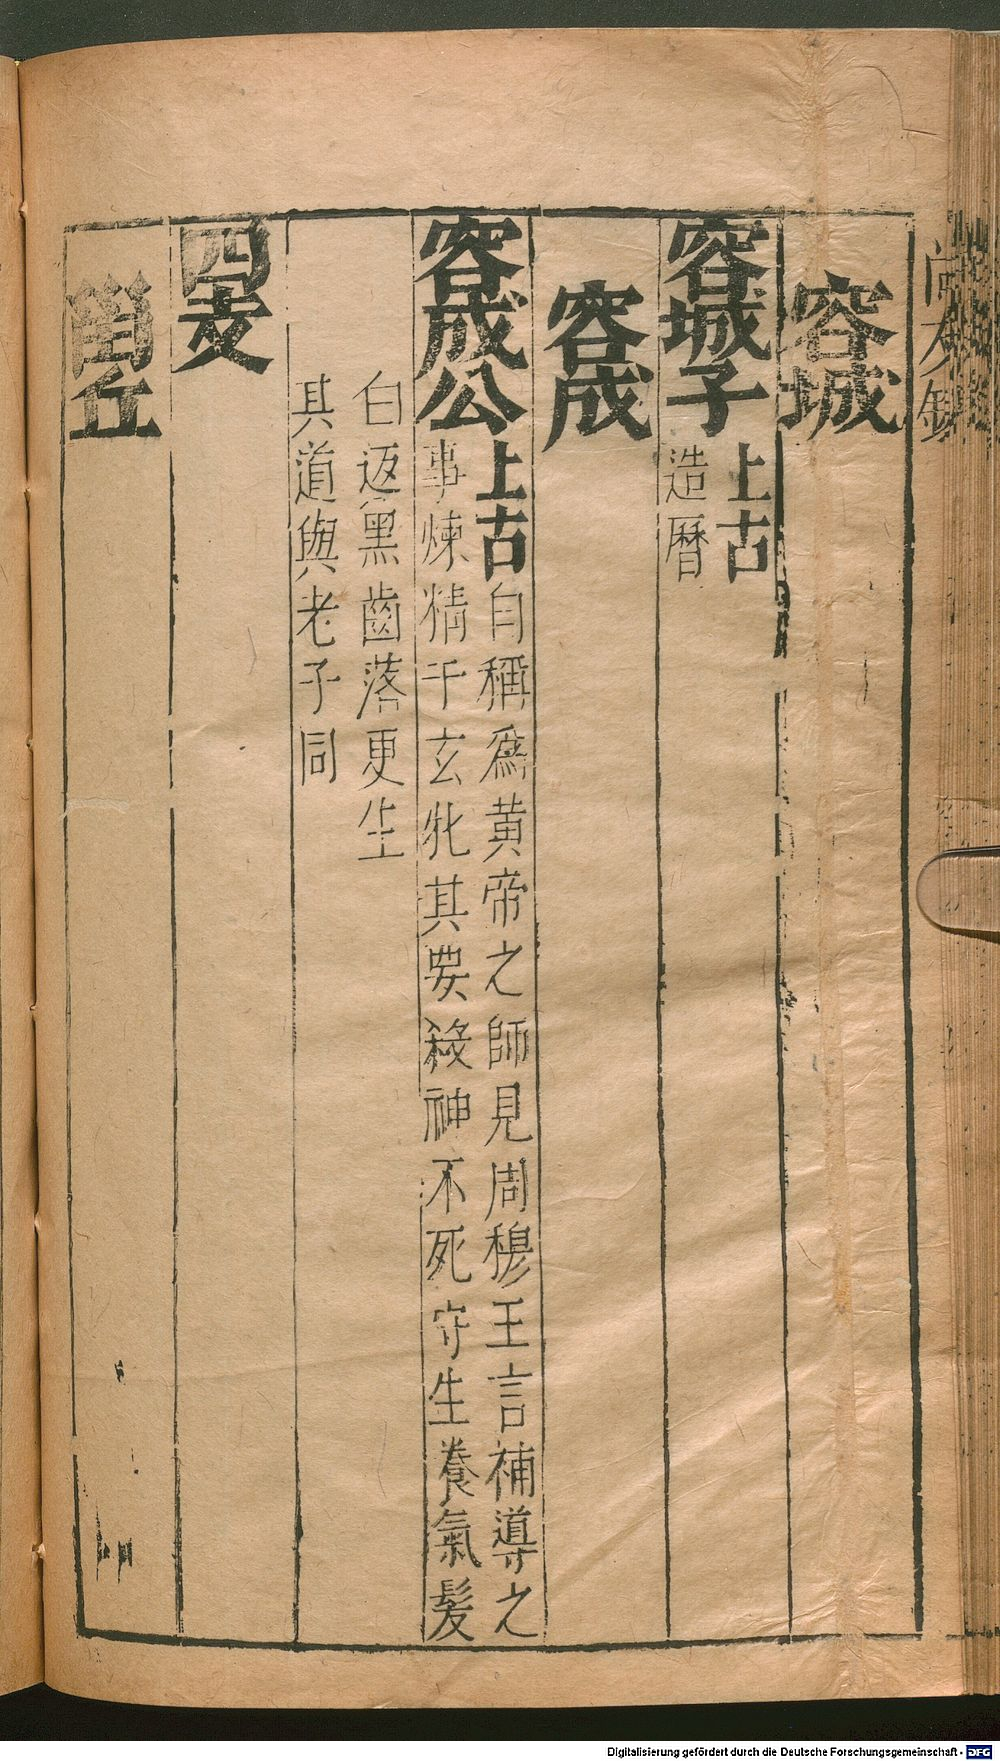 尚友錄
容城
容城子 上古
造曆
容成
容成公 上古 自稱為黃帝之師見周穆王言補導之
事煉精于玄牝其要糓神不死守生養氣髮
白返黑齒落更生
其道與老子同
四支
閭丘
Digitalisierung gefördert durch die Deutsche Forschungsgemeinschaft - DFG